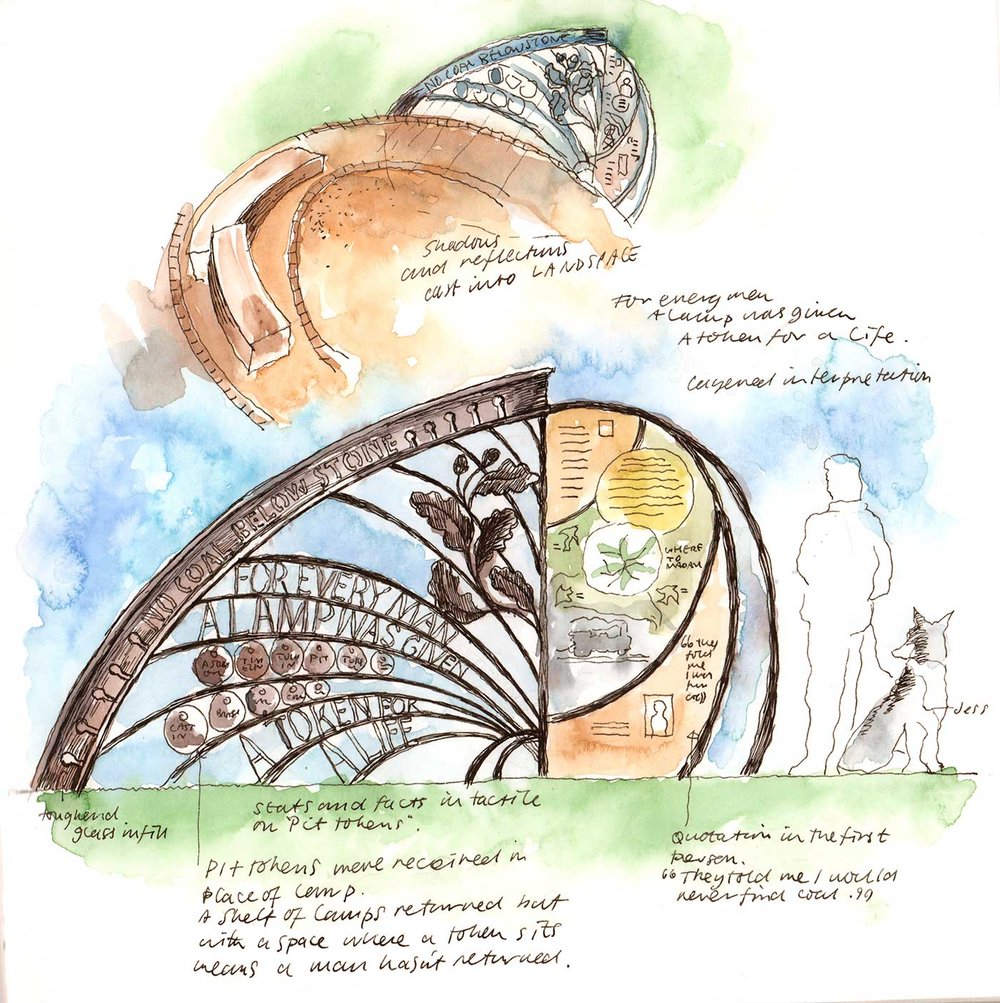 NO COAL BELOW STONE
Shadows
and reflections
cast into LANDSPACE
For every men
A lamp was given
A token for a life.
Layered interpretation
NO COAL BELOW STONE
FOR EVERY MAN
A LAMP WAS GIVEN
PIT
CAST
IN
A TOKEN FOR
A LIFE
WHERE
TO
“They
told
me
Jess
toughend
glass infill
Stats and facts in tactile
on "Pit tokens".
Pit tokens were received in
place of Lamp.
A shelf of Lamps returned but
with a space where a token sits
means a man hasn't returned.
Quotation in the first
person.
“They told me I would
never find coal.”